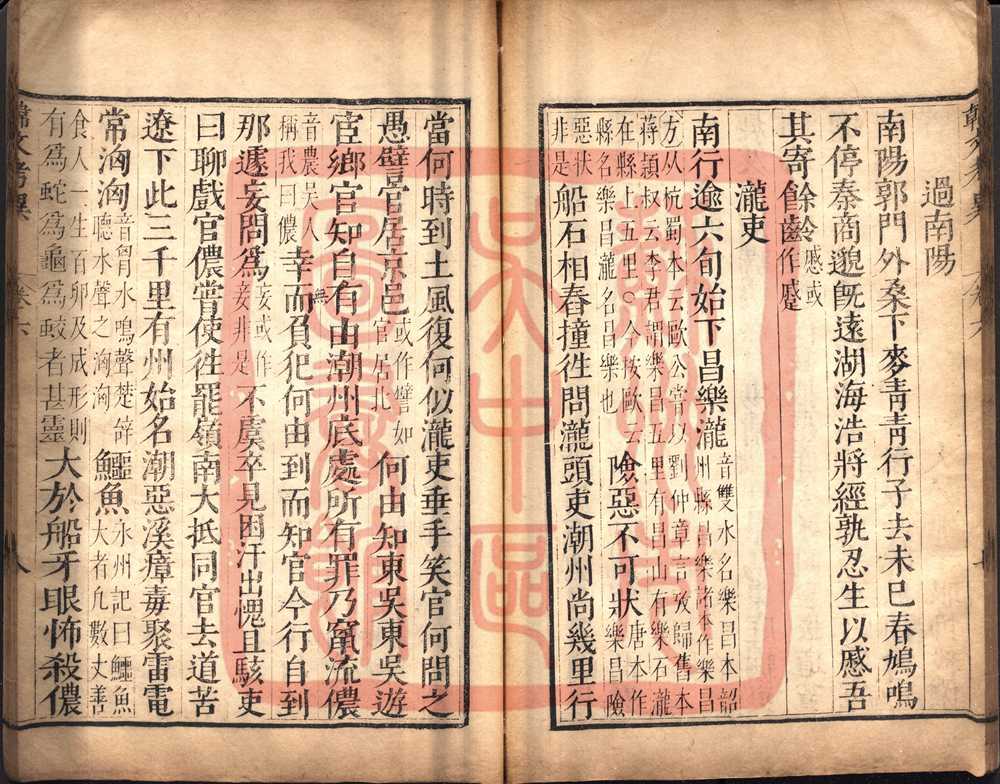 過南陽
南陽郭門外桑下麥青青行子去未已春鳩鳴
不停秦商邈旣遠湖海浩將經孰忍生以慼吾
其寄餘齡慼或作蹙
瀧吏
南行逾六旬始下昌樂瀧音雙水名樂昌本韶州縣昌樂諸本作樂昌
方从杭蜀本云歐公嘗以劉仲章言攷歸舊本蔣穎叔云李君謂樂昌五里有昌山有樂石瀧
在縣上五里○今按歐云縣名樂昌瀧名昌樂也險惡不可狀唐本作樂昌險惡狀
非是船石相舂撞徃問瀧頭吏潮州尚幾里行
當何時到土風復何似瀧吏垂手笑官何問之
愚譬官居京邑或作譬如官居北何由知東吳東吳遊
宦鄉官知自有由潮州底處所有罪乃竄流儂
音農吳人稱我曰儂幸無負犯何由到而知官今行自到
那遽妄問爲妄或作妾非是不虞卒見困汗出愧且駭吏
曰聊戲官儂嘗使徃罷嶺南大抵同官去道苦
遼下此三千里有州始名潮惡溪瘴毒聚雷電
常洶洶音胷水鳴聲楚辭聽水聲之洶洶鱷魚永州記曰鱷魚大者九數丈善
食人一生百卵及成形則有爲蛇爲龜爲蛟者甚靈大於船牙眼怖殺儂
韓文考異 卷六 八